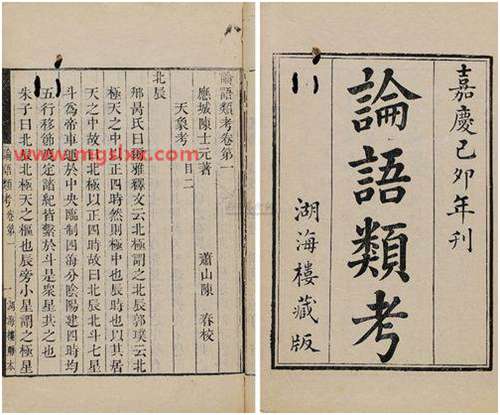 嘉慶己卯年刊
論語類考
湖海樓藏版
論語類考卷第一
應城陳士元著　蕭山陳　春校
天象考　目二
北辰
邢昺氏曰爾雅釋文云北極謂之北辰郭璞云北
極天之中以正四時然則極中也辰時也以其居
天之中故曰北極以正四時故曰北辰北斗七星
斗為帝車運於中央臨制四海分陰陽建四時均
五行移節度定諸紀皆繫於斗是眾星共之也
朱子曰北辰北極天之樞也辰旁小星謂之極星
論語類考卷第一　一　湖海樓雕本